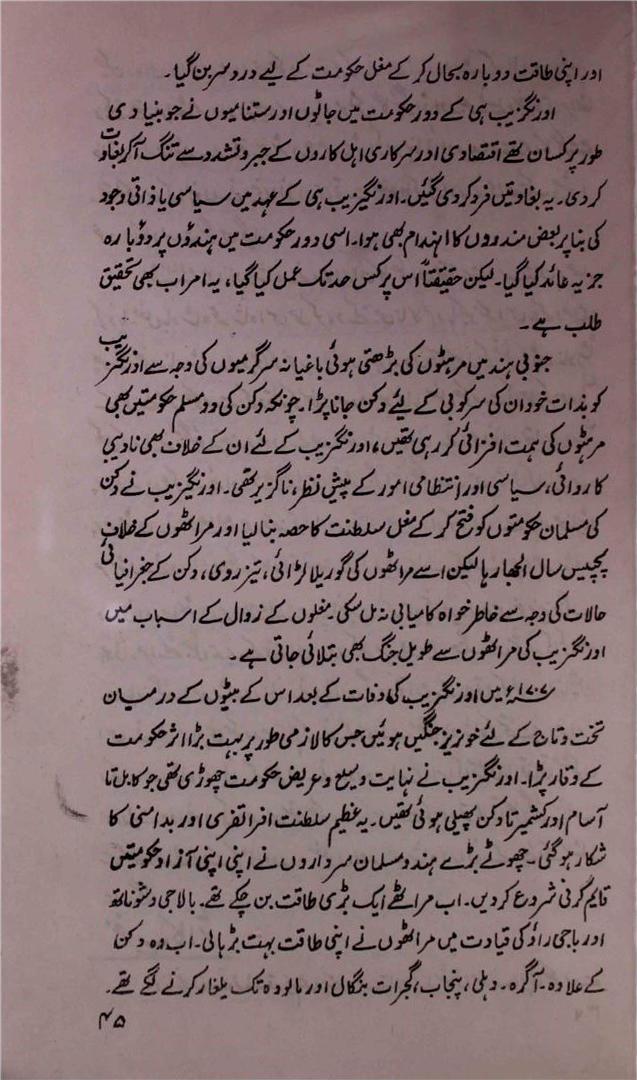 اور اپنی طاقت دوبارہ بحال کر کے مغل حکومت کے لیے درد سر بن گیا۔
اورنگزیب ہی کے دور حکومت میں جاٹوں اور ستنامیوں نے جو بنیادی
طور پر کسان تھے اقتصادی اور سرکاری اہل کاروں کے جبر و تشدد سے تنگ آکر بغاوت
کر دی۔ یہ بغاوتیں فرد کر دی گئیں۔ اورنگزیب ہی کے عہد میں سیاسی یا ذاتی وجود
کی بنا پر بعض مندروں کا انہدام بھی ہوا۔ اسی دور حکومت میں ہندوؤں پر دوبارہ
جزیہ عائد کیا گیا۔ لیکن حقیقتاً اس پر کس حد تک عمل کیا گیا، یہ امر اب بھی تحقیق
طلب ہے۔
جنوبی ہند میں مرہٹوں کی بڑھتی ہوئی باغیانہ سرگرمیوں کی وجہ سے اورنگزیب
کو بذات خود ان کی سرکوبی کے لیئے دکن جانا پڑا۔ چونکہ دکن کی دو مسلم حکومتیں بھی
مرہٹوں کی ہمت افزائی کر رہی تھیں، اورنگزیب کے لئے ان کے خلاف بھی تادیبی
کاروائی، سیاسی اور انتظامی امور کے پیش نظر، ناگزیر تھی۔ اورنگزیب نے دکن
کی مسلمان حکومتوں کو فتح کر کے مغل سلطنت کا حصہ بنا لیا اور مراٹھوں کے خلاف
پچیس سال الجھا رہا لیکن اسے مراٹھوں کی گوریلا لڑائی، تیز روی، دکن کے جغرافیائی
حالات کی وجہ سے خاطر خواہ کامیابی نہ مل سکی۔ مغلوں کے زوال کے اسباب میں
اورنگزیب کی مراٹھوں سے طویل جنگ بھی بتلائی جاتی ہے۔
۱۷۰۷ء میں اورنگزیب کی وفات کے بعد اس کے بیٹوں کے درمیان
تخت و تاج کے لئے خونریز جنگیں ہوئیں جس کا لازمی طور پر بہت بڑا اثر حکومت
کے وقار پڑا۔ اورنگزیب نے نہایت وسیع و عریض حکومت چھوڑی تھی جو کابل تا
آسام اور کشمیر تا دکن پھیلی ہوئی تھیں۔ یہ عظیم سلطنت افراتفری اور بدامنی کا
شکار ہو گئی۔ چھوٹے بڑے ہندو مسلمان سرداروں نے اپنی اپنی آزاد حکومتیں
قایم کرنی شروع کر دیں۔ اب مراٹھے ایک بڑی طاقت بن چکے تھے۔ بالاجی وشوناتھ
اور باجی راؤ کی قیادت میں مراٹھوں نے اپنی طاقت بہت بڑہالی۔ اب وہ دکن
کے علاوہ۔ آگرہ۔ دہلی، پنجاب، گجرات بنگال اور مالودہ تک یلغار کرنے لگے تھے۔
۴۵